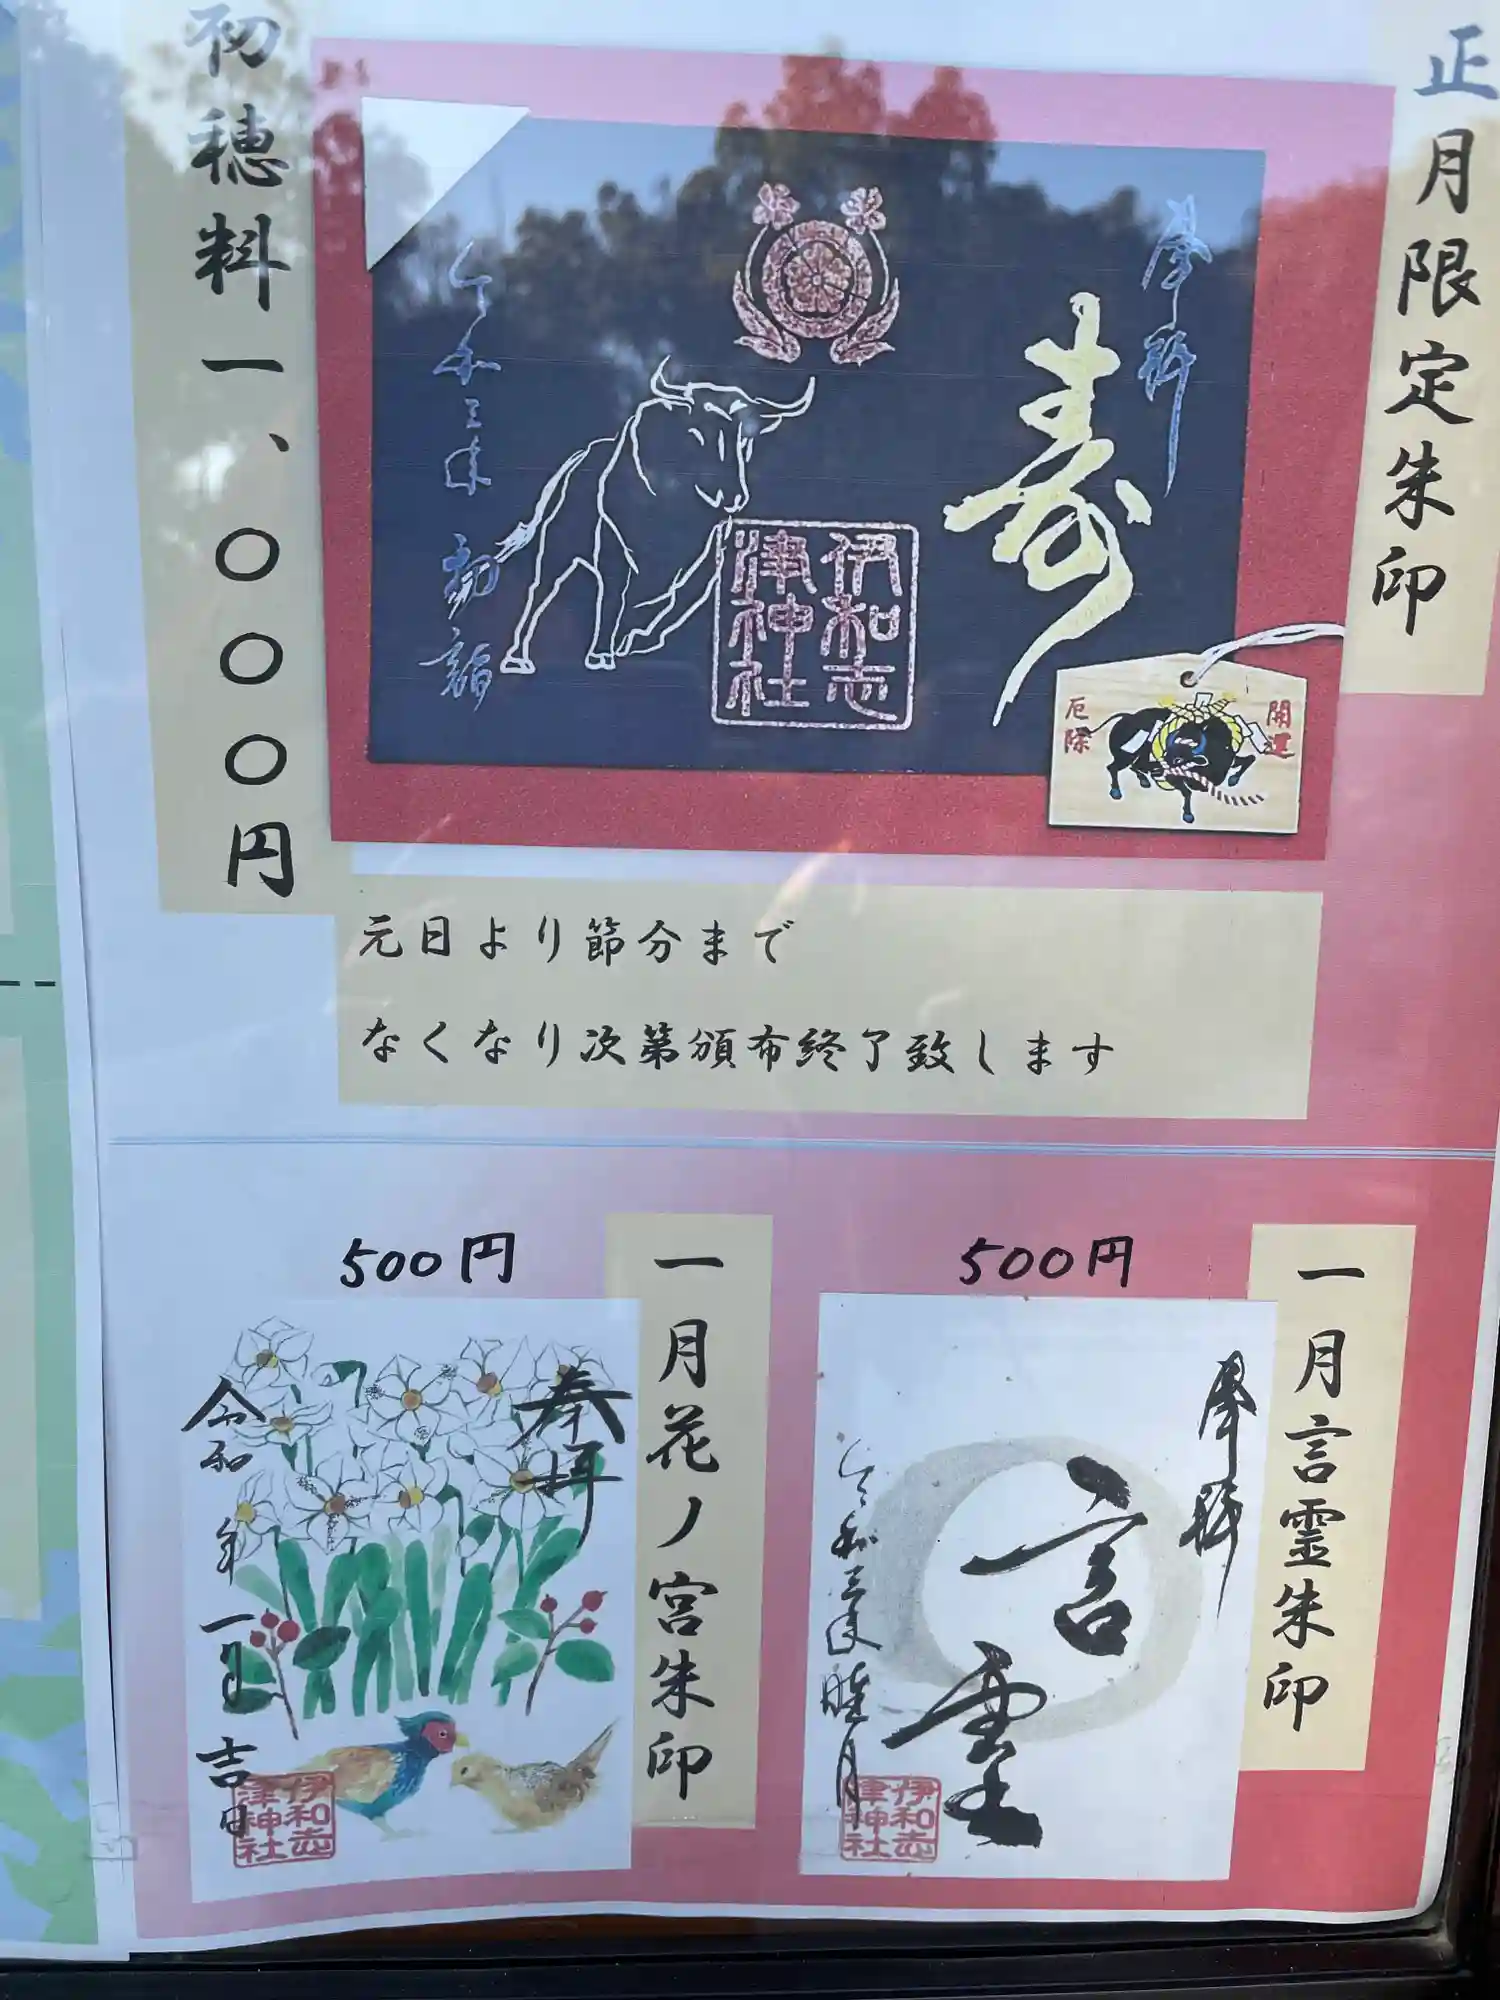 正月限定朱印
初穂料一、〇〇〇円
奉拝
寿
伊和志
津神社
令和三年 初詣
開運
厄除
元日より節分まで
なくなり次第頒布終了致します
一月言霊朱印
500円
奉拝
言霊
令和三年睦月
伊和志
津神社
一月花ノ宮朱印
500円
奉拝
令和 年 一月 吉日
伊和志
津神社